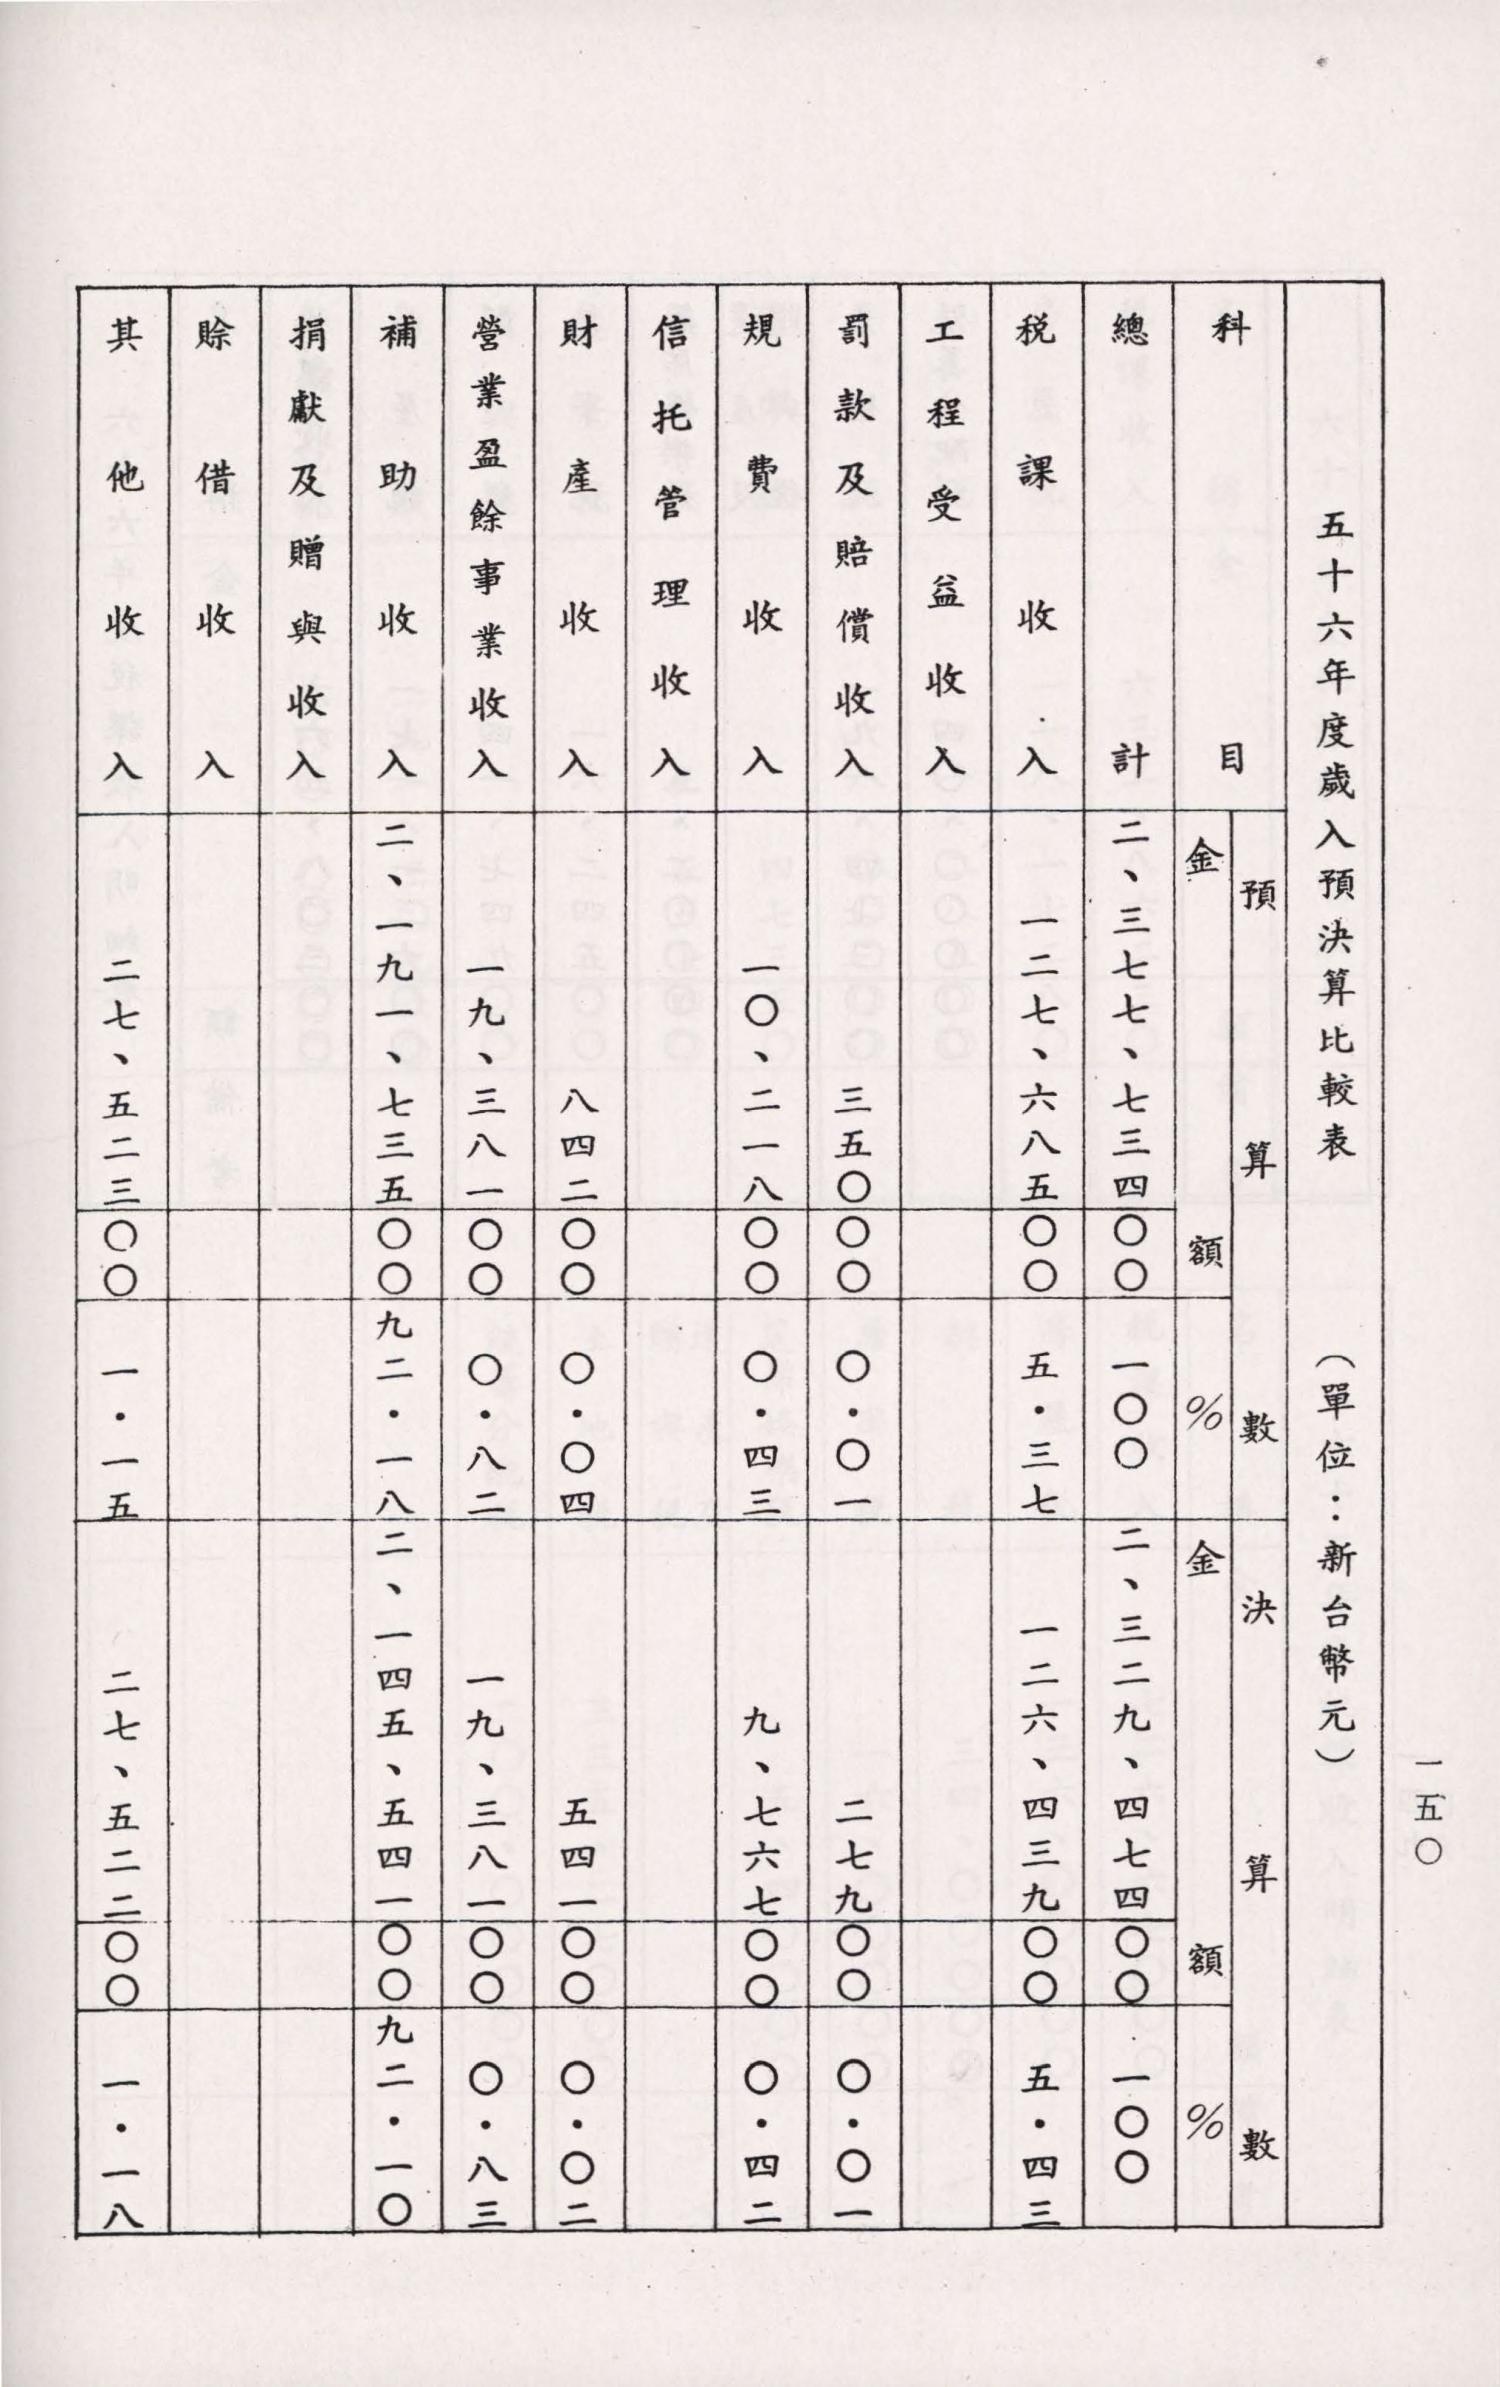 一五〇
五十六年度歲入預決算比較表 （單位：新台幣元）
科目 預算數 金額 % 決算數 金額 %
總計 二、三七七、七三四〇〇 一〇〇 二、三二九、四七四〇〇 一〇〇
稅課收入 一二七、六八五〇〇 五．三七 一二六、四三九〇〇 五．四三
工程受益收入
罰款及賠償收入 三五〇〇〇 〇．〇一 二七九〇〇 〇．〇一
規費收入 一〇、二一八〇〇 〇．四三 九、七六七〇〇 〇．四二
信托管理收入
財產收入 八四二〇〇 〇．〇四 五四一〇〇 〇．〇二
營業盈餘事業收入 一九、三八一〇〇 〇．八二 一九、三八一〇〇 〇．八三
補助收入 二、一九一、七三五〇〇 九二．一八 二、一四五、五四一〇〇 九二．一〇
捐獻及贈與收入
賒借收入
其他收入 二七、五二三〇〇 一．一五 二七、五二二〇〇 一．一八